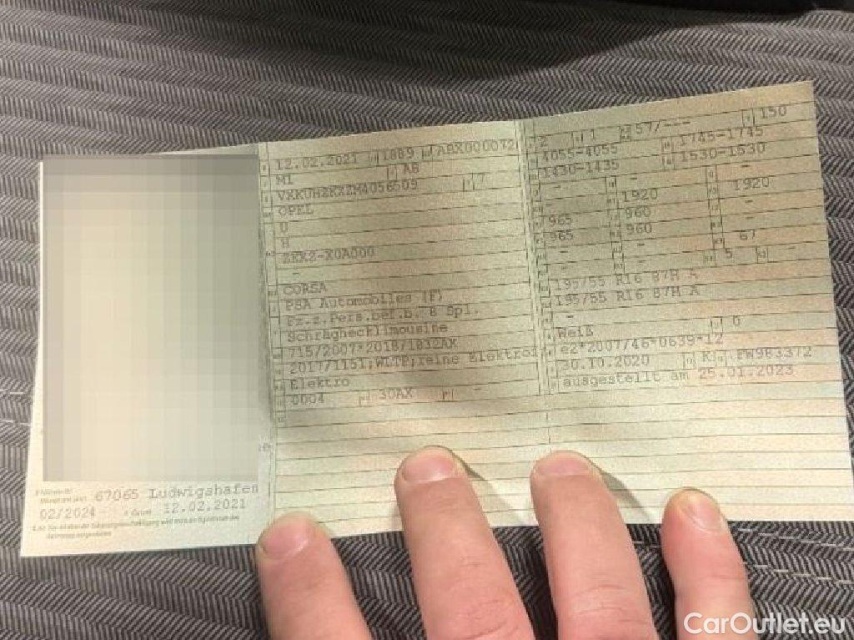 12.02.2021 1889 ABX000072
M1 AB
VXKUHZKXZM4056509 7
OPEL
U
H
ZKX2-X0A000
-
CORSA
PSA Automobiles (F)
Fz.z.Pers.bef.b. 8 Spl.
Schräghecklimousine
715/2007*2018/1832AX
2017/1151;WLTP;reine Elektro
Elektro
0004 30AX -
2 1 57/--- 150
4055-4055 1745-1745
1430-1435 1530-1530
- - -
- 1920 1920
965 960 -
965 960 -
- - 67
- 5 -
195/55 R16 87H A
195/55 R16 87H A
- -
Weiß 0
e2*2007/46*0639*12
30.10.2020 K PW983372
ausgestellt am 25.01.2023
67065 Ludwigshafen
02/2024 12.02.2021
CarOutlet.eu